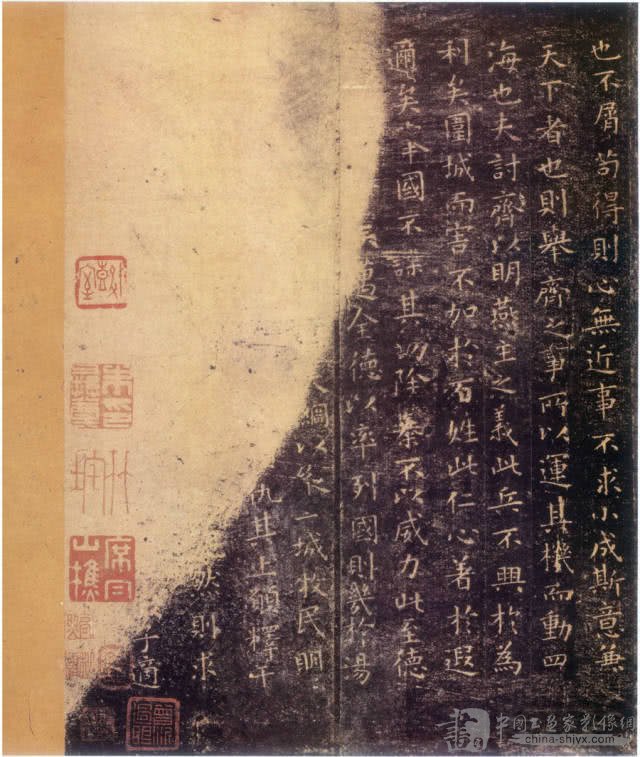 也不屑苟得則心無近事不求小成斯意兼
天下者也則舉齊之事所以運其機而動四
海也夫討齊以明燕主之義此兵不興於為
利矣圍城而害不加於百姓此仁心著於遐
邇矣舉國不謀其功除暴不以威力此至德
邁全德以率列國則幾於湯
綱以縱二城牧民明
仇其上願釋干
然則求
子適
china-shjyx.com